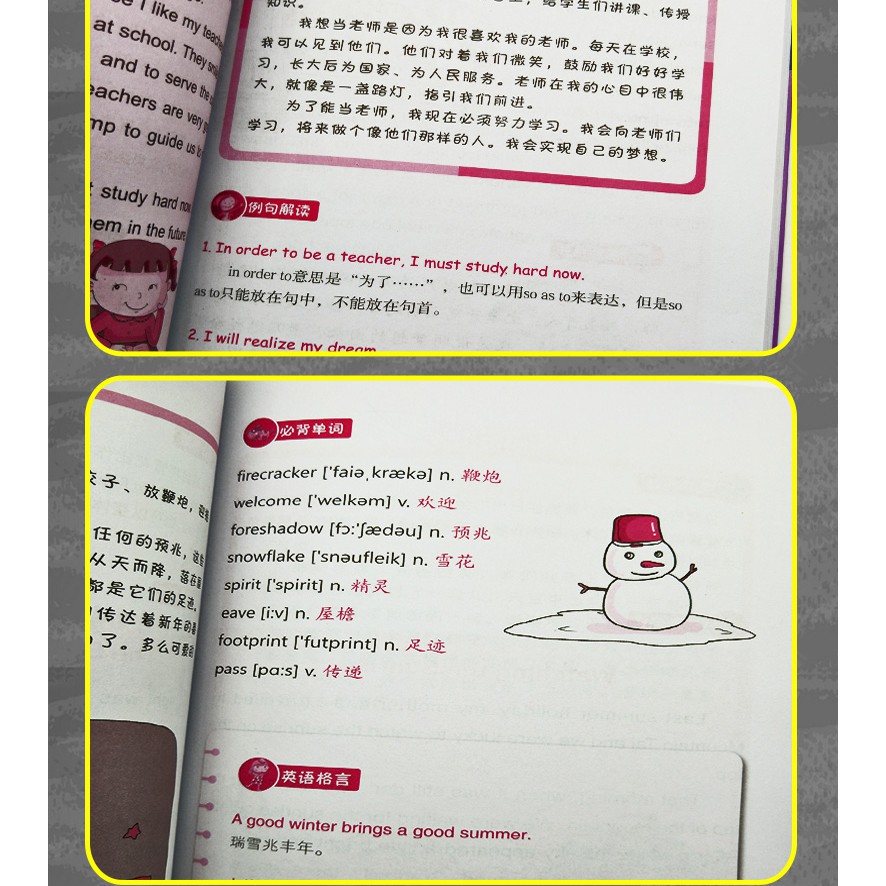 e I like my teache
at school. They smi
and to serve the
eachers are very
mp to guide us
t study hard now
hem in the future
，给学生们讲课、传授
知识。
我想当老师是因为我很喜欢我的老师。每天在学校，
我可以见到他们。他们对着我们微笑，鼓励我们好好学
习，长大后为国家、为人民服务。老师在我的心目中很伟
大，就像是一盏路灯，指引我们前进。
为了能当老师，我现在必须努力学习。我会向老师们
学习，将来做个像他们那样的人。我会实现自己的梦想。
例句解读
1. In order to be a teacher, I must study hard now.
in order to意思是“为了……”，也可以用so as to来表达，但是so
as to只能放在句中，不能放在句首。
2. I will realize my dream
交子、放鞭炮，迎
任何的预兆，这些
从天而降，落在屋
都是它们的足迹。
传达着新年的
了。多么可爱的
必背单词
firecracker ['faiəˌkrækə] n. 鞭炮
welcome ['welkəm] v. 欢迎
foreshadow [fɔ:'ʃædəu] n. 预兆
snowflake ['snəufleik] n. 雪花
spirit ['spirit] n. 精灵
eave [i:v] n. 屋檐
footprint ['futprint] n. 足迹
pass [pɑ:s] v. 传递
英语格言
A good winter brings a good summer.
瑞雪兆丰年。